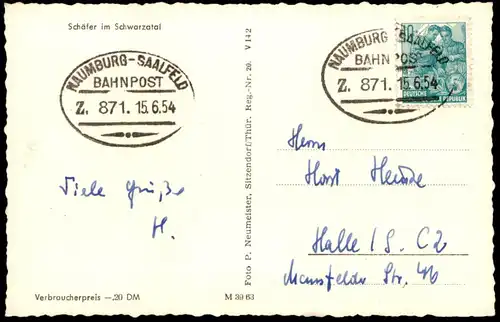 Schäfer im Schwarzatal
NAUMBURG-SAALFELD
BAHNPOST
Z. 871. 15.6.54
Viele Grüße
H.
Verbraucherpreis —,20 DM
M 39 63
Foto P. Neumeister, Sitzendorf/Thür. Reg.-Nr. 29. V 14 2
NAUMBURG-SAALFELD
BAHNPOST
Z. 871. 15.6.54
DEUTSCHE
REPUBLIK
Herrn
Horst
Halle / S. C2
Mansfelder Str. 46